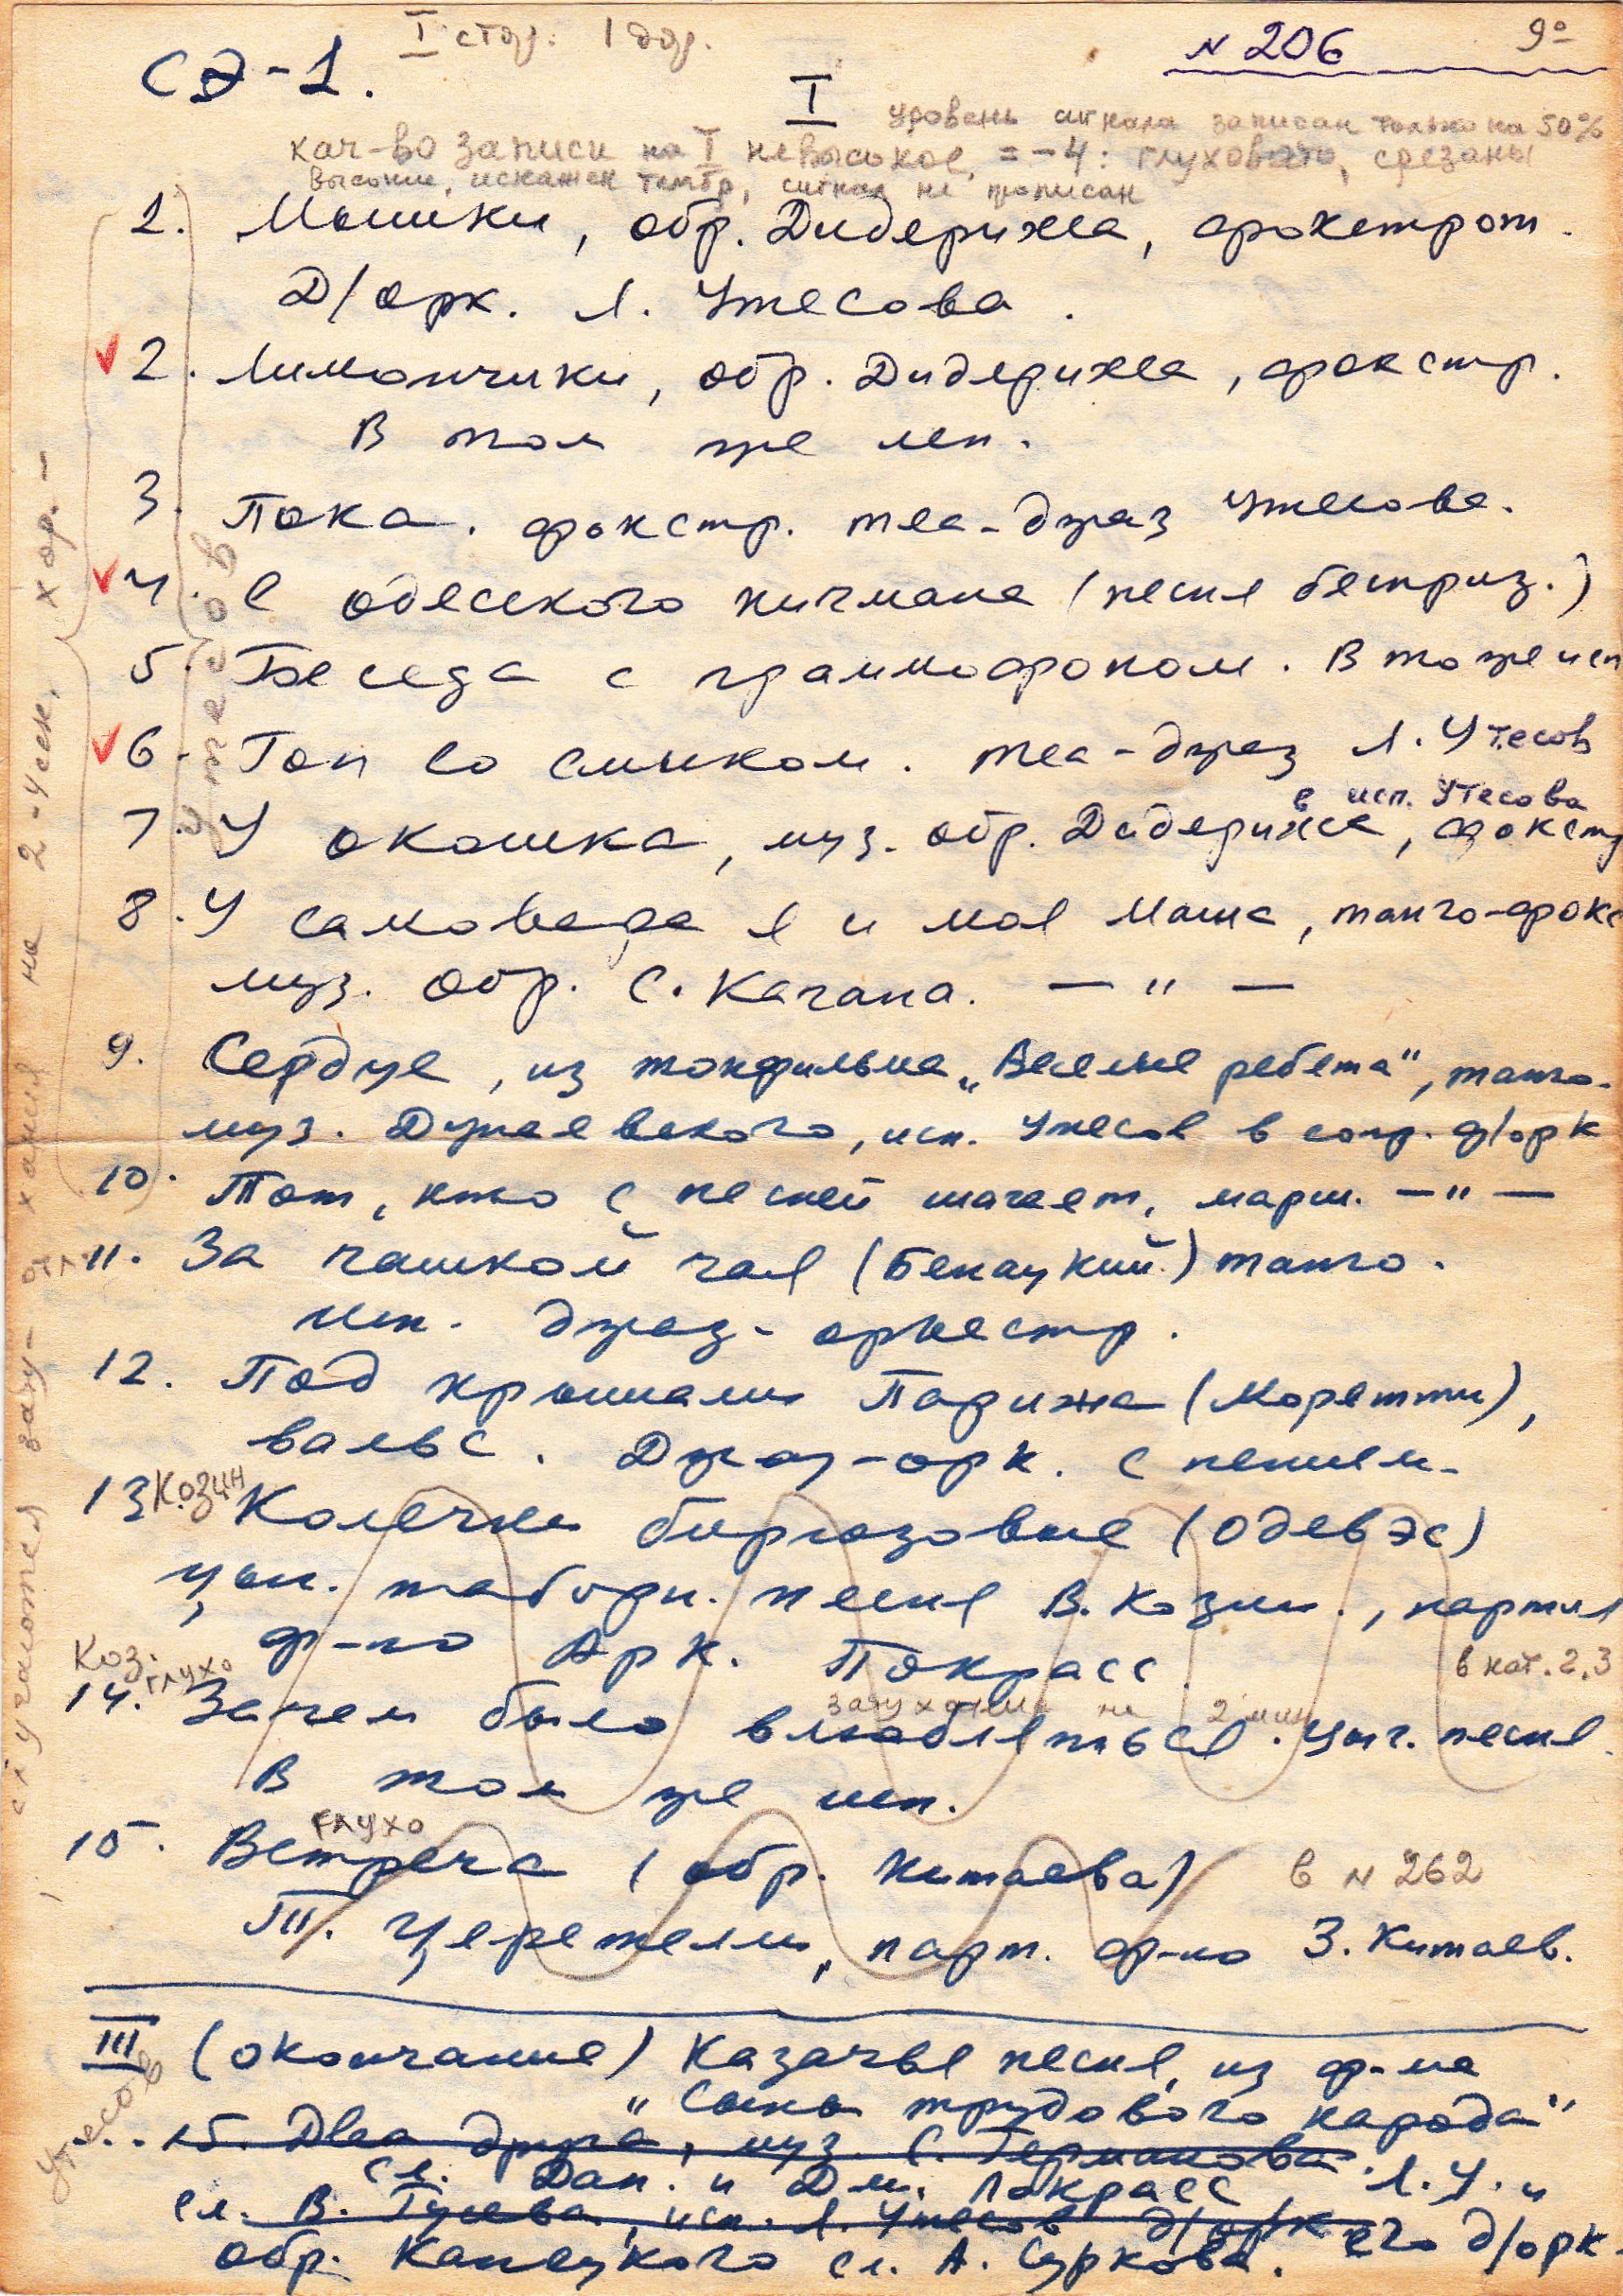 I стор. 1 дор.
СЭ-1.
N 206
9º
I
уровень сигнала записан только на 50%
кач-во записи на I невысокое, = -4: глуховато, срезаны
высокие, искажен тембр, сигнал не прописан
1. Мышки, обр. Дидерихса, фокстрот.
Д/орк. Л. Утесова.
2. Лимончики, обр. Дидерихса, фокстр.
В том же исп.
3. Пока. фокстр. теа-джаз Утесова.
4. С одесского кичмана (песня бесприз.)
5. Беседа с граммофоном. В то же исп
6. Гоп со смыком. теа-джаз Л. Утесов
в исп. Утесова
7. У окошка, муз. обр. Дидерихса, фокст
8. У самовара я и моя Маша, танго-фокс
муз. обр. С. Кагана. — " —
9. Сердце, из тонфильма „Веселые ребята", танго.
муз. Дунаевского, исп. Утесов в сопр. д/орк
10. Тот, кто с песней шагает, марш. — " —
11. За чашкой чая (Бенацкий) танго.
Исп. джаз-оркестр.
12. Под крышами Парижа (Моретти),
вальс. Джаз-орк. с пением.
13 Козин Колечки бирюзовые (Одевэс)
цыг. таборн. песня В. Козин., партия
ф-но Арк. Покрасс.
в кат. 2,3
Коз. глухо
затухания на 2 мин
14. Зачем было влюбляться. Цыг. песня.
В том же исп.
глухо
15. Встреча (обр. Китаева)
в N 262
Т. Церетели, парт. ф-но З. Китаев.
III (окончание) Казачья песня, из ф-ма
„Сыны трудового народа"
15. Два друга, муз. С. Германова.
сл. Дан. и Дм. Покрасс, Л. У. и
сл. В. Гусева, исп. Л. Утесов д/орк его д/орк.
обр. Капецкого сл. А. Суркова.
Утесов
Утесов
случаются зату-
хания на 2-4 сек, хор. -